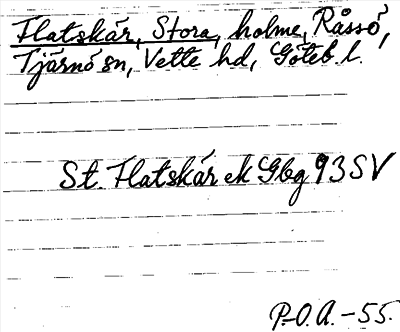 Flatskär, Stora, holme, Råssö,
Tjärnö sn, Vette hd, Göteb. l.
St. Flatskär ek Gbg 93 SV
P.O.A. -55.